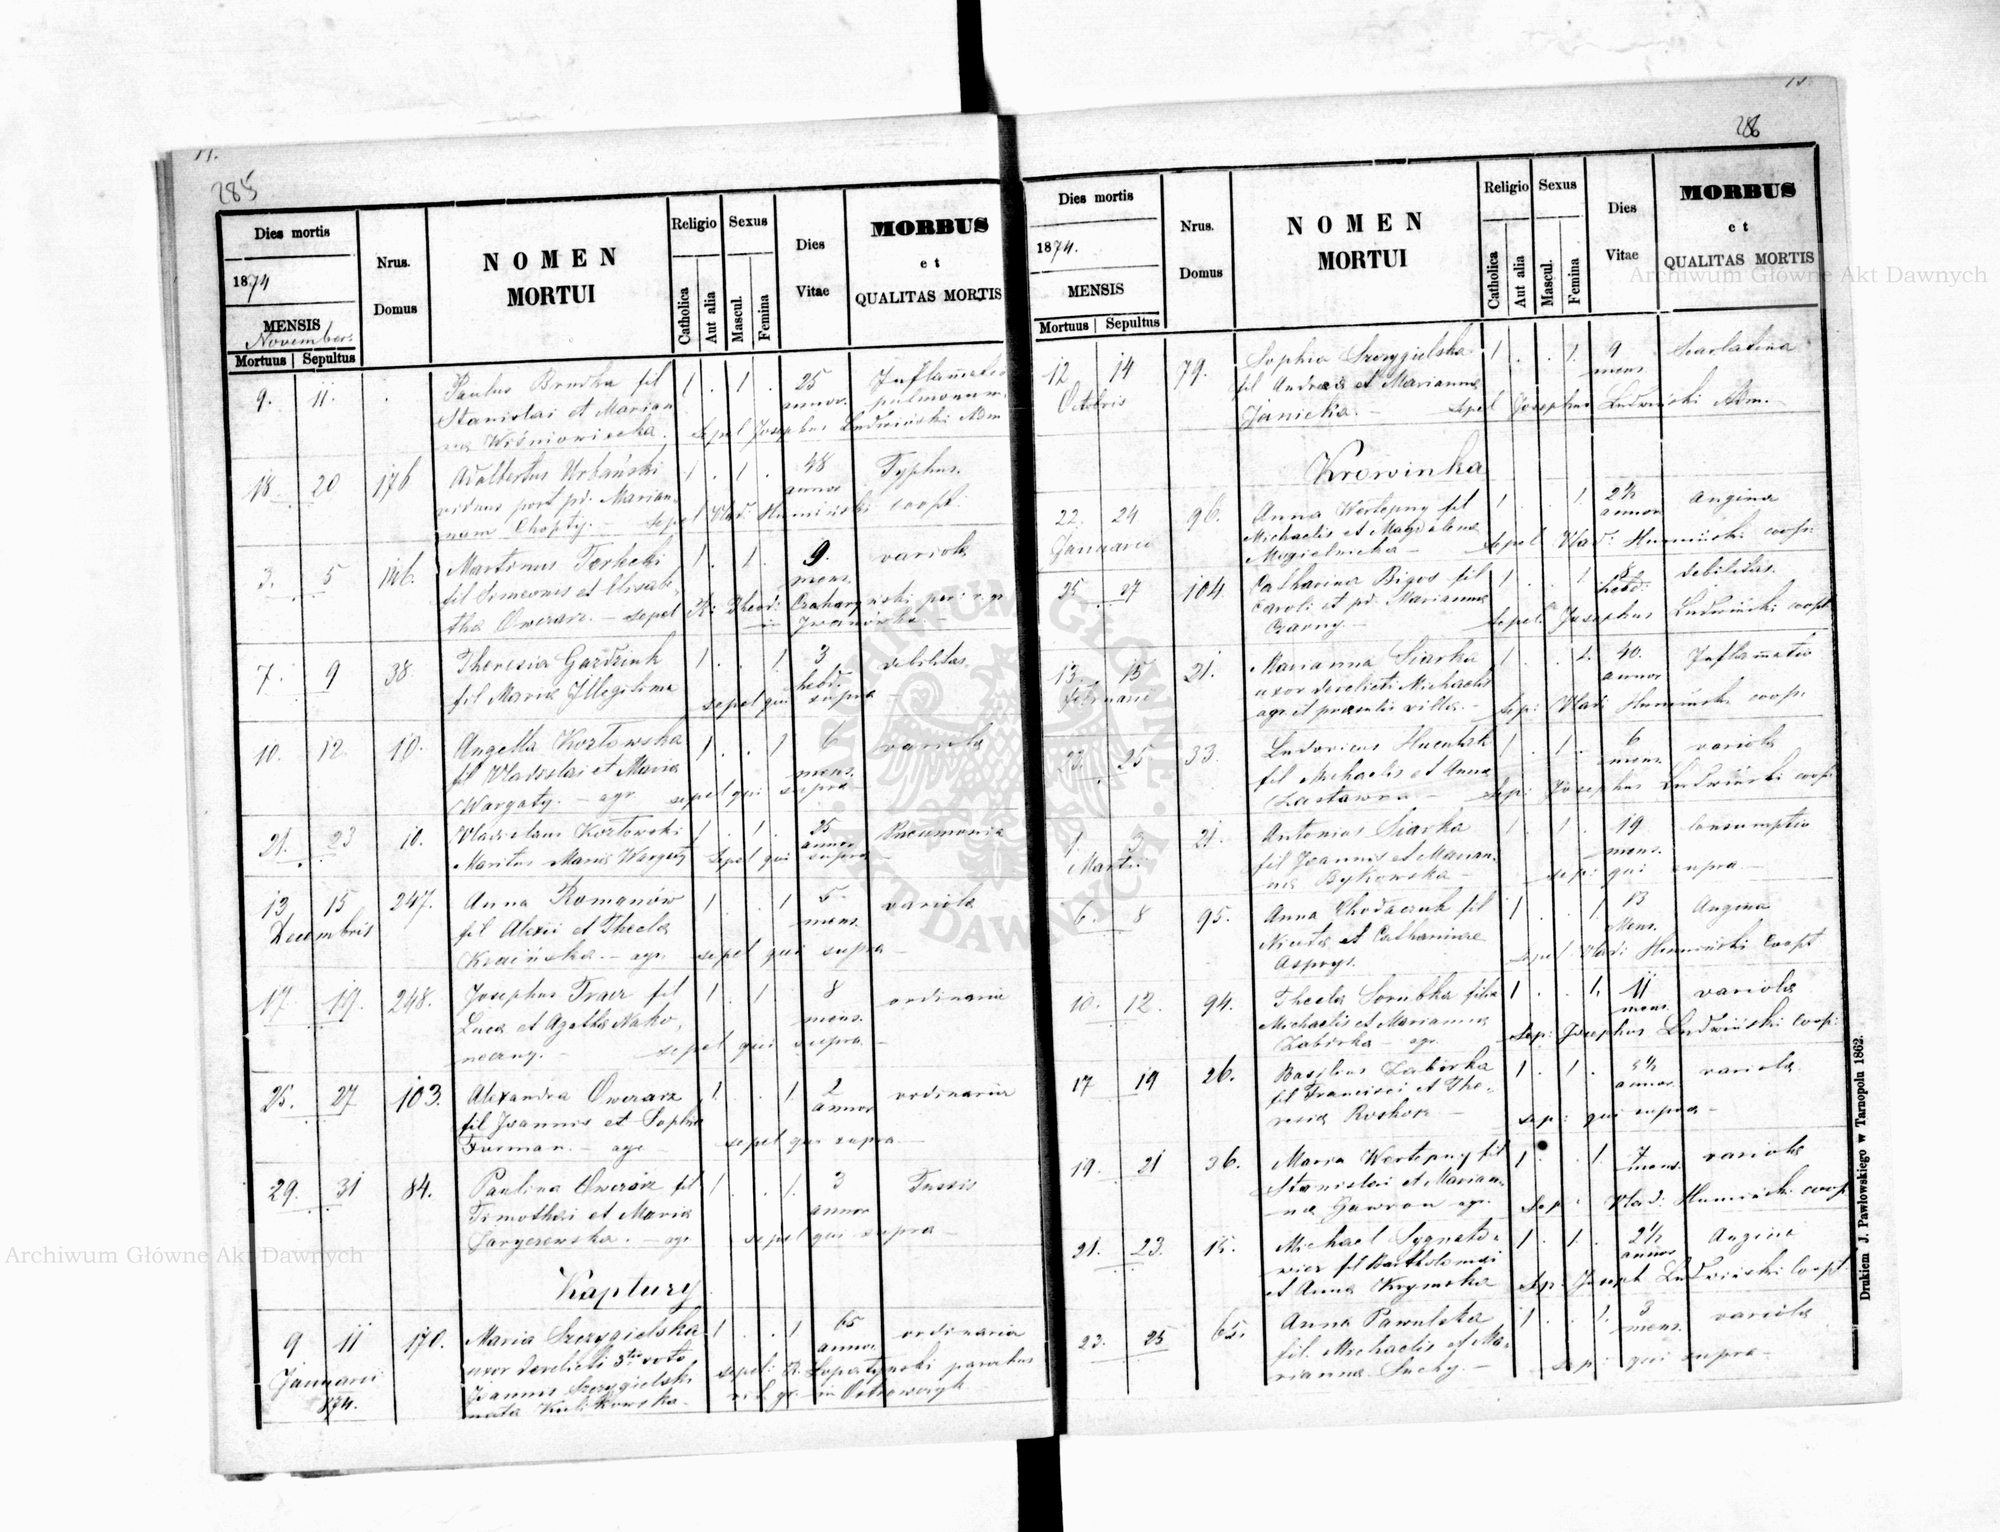 285
Dies mortis
1874
MENSIS
Novembris
Mortuus | Sepultus
Nrus.
Domus
NOMEN
MORTUI
Religio
Catholica
Aut alia
Sexus
Mascul.
Femina
Dies
Vitae
MORBUS
et
QUALITAS MORTIS
9. 11. Paulus Brudka fil 1 . 1 . 25 Inflamatio
Stanislai et Marian annor. pulmonum
na Wiśniowiecka. sepel Josephus Ludwiński Adm
18 20 176 Adalbertus Urbański 1 . 1 . 48 Typhus.
viduus post pd. Marian annor
nam Chopty. – sepel Vlad: Humiński coopt.
3. 5 146. Martinus Terlecki 1 . 1 . 9. variola
fil Simeonis et Elisab mens.
tha Owerarz. – sepel R: Theod: per: r. gr
in Iwanówka –
7. 9 38. Theresia Gardziuk 1 . . 1 3 debilitas
fil Maria Illegitima hebd.
sepel qui supra –
10. 12 10. Angella Kozłowska 1 . . 1 6 variola
fil Vladislai et Maria mens.
Wargaty. – agr. sepel qui supra –
21. 23 10. Vladislaus Kozłowski 1 . 1 . 25 Pneumonia
annor
Maritus Maria Wargaty sepel qui supra –
13 15 247. Anna Romanów 1 . . 1 5 variola
Decembris fil Alexii et Thecla mens.
Kraińska. – agr. sepel qui supra –
17. 19. 248. Josephus Tracz fil 1 . 1 . 8 ordinaria
Luca et Agatha Nako, mens.
neczny. – sepel qui supra –
25. 27 103. Alexandra Owerarz 1 . . 1 2 ordinaria
fil Joannis et Sophia annor
Furman. – agr – sepel qui supra –
29. 31 84. Paulina Owerarz fil 1 . . 1. 3 Tussis
Timothei et Maria annor
– agr sepel qui supra –
Kaptury
9 11 170. Maria Szczygielska 1 . . 1 65 ordinaria
annor
Januarii uxor derelicti 3tio voto sepel: R. Łopatyński parochus
874. Joannis Szczygielski r. l. gr. in Ostrowczyk –
nata Kulikowska –
286
Dies mortis
1874.
MENSIS
Mortuus | Sepultus
Nrus.
Domus
NOMEN
MORTUI
Religio
Catholica
Aut alia
Sexus
Mascul.
Femina
Dies
Vitae
MORBUS
et
QUALITAS MORTIS
12 14 79. Sophia Szczygielska 1 . . 1. 9 Scarlatina
Octobris fil Andrea et Marianna mens
Janicka. – sepel Josephus Ludwiński Adm. –
Krowinka
22. 24 96. Anna Wertepny fil 1 . . 1 2½ Angina
Januarii Michaelis et Magdalena annor
Mygielnicka – sepel Vlad: Humiński coop:
25 27 104. Catharina Bigos fil 1 . . 1 8 debilitas.
Caroli et pd. Marianna hebd:
Czarny. – sepel: Josephus Ludwiński coopt
13. 15 21. Marianna Siarka 1 . . 1. 40. Inflamatio
Februarii uxor derelicti Michaelis annor
agr. et praesentis villa – sep: Vlad: Humiński coop:
23. 25 33. Ludovicus Huculak 1 . 1 . 6 variola
fil Michaelis et Anna mens.
Zastawna – sep: Josephus Ludwiński coop:
1 3 21. Antonius Siarka 1 . 1 . 19 Consumptio
Martii fil Joannis et Marian, mens.
na Bykowska – sep: qui supra –
6. 8 95. Anna Chodaczuk fil 1 . . 1. 13 Angina
Nicuta et Catharinae Mens.
sepel: Vlad: Humiński Coopt
10. 12. 94. Thecla Sorubka filia 1 . . 1. 11 variola
Michaelis et Marianna mens.
Zabirka – agr. sep: Josephus Ludwiński Coop:
17 19 26. Basilius Zabirka 1 . 1 . 5½ variola
fil Francisci et The, annor
resia Roskosz – sep: qui supra –
19. 21 36. Maria Wertepny fil 1 . . 1. 7 variola
Stanislai et Marian, mens.
na Gawron agr. sep: Vlad: Humiński coop
21. 23. 15. Michael Sygneto 1 . 1 . 2½ Angina
wicz fil Bartholomei annor
et Anna Krymska sep: Joseph Ludwiński Coopt
23. 25 65. Anna Pawulska 1 . . 1. 3 variola
fil. Michaelis et Ma, mens.
rianna Suchy. – sep: qui supra –
Drukiem J. Pawłowskiego w Tarnopolu 1862.
Archiwum Główne Akt Dawnych
Archiwum Główne Akt Dawnych
ARCHIWUM GŁÓWNE
AKT DAWNYCH